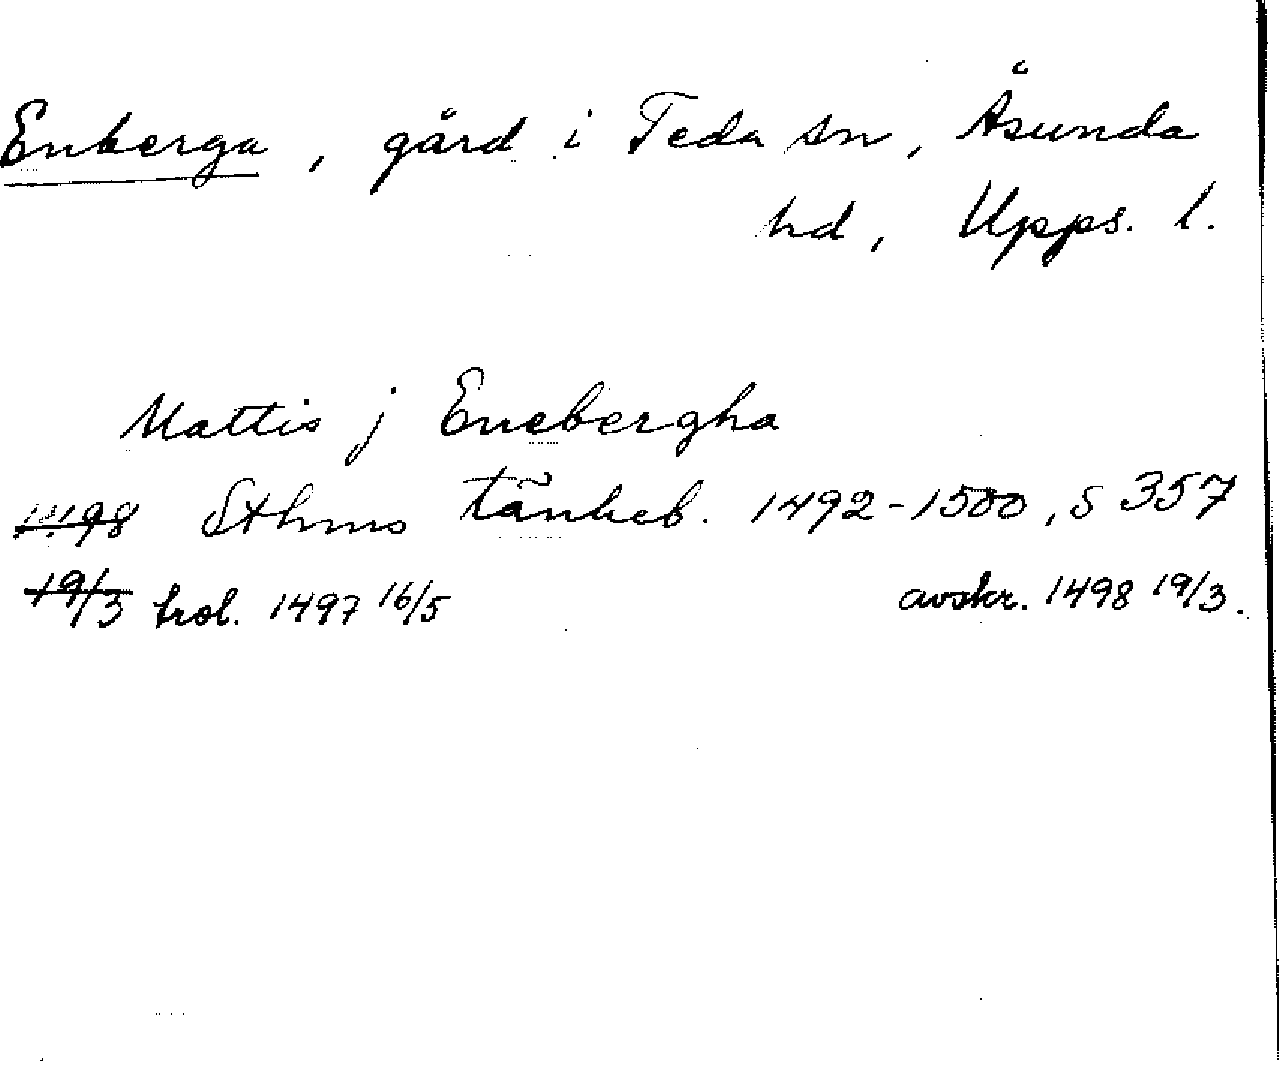 Enberga, gård i Teda sn, Åsunda
hd, Upps. l.
Mattis j Enebergha
1498 Sthms tänkeb. 1492-1500, s 357
19/3 trol. 1497 16/5 avskr. 1498 19/3.